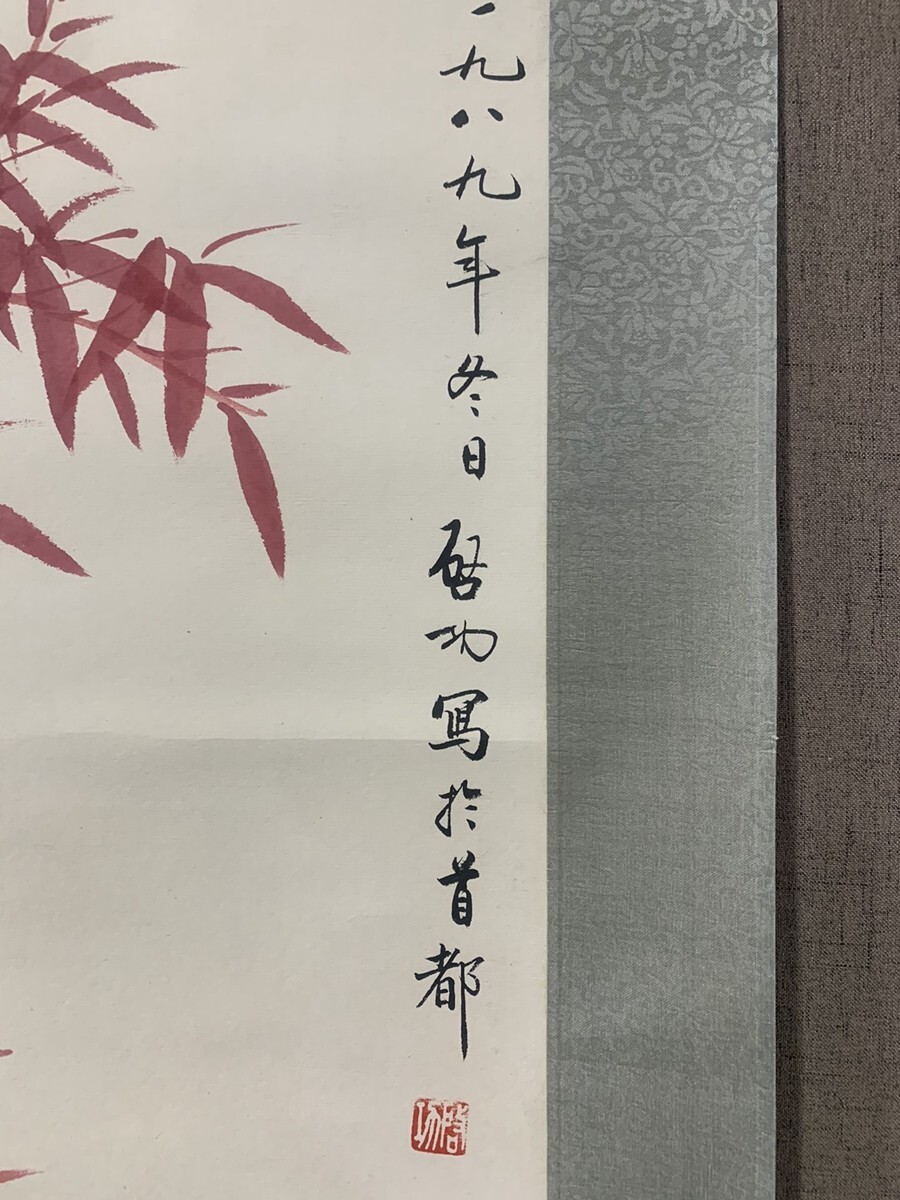 一九八九年冬日啓功寫於首都
啓功